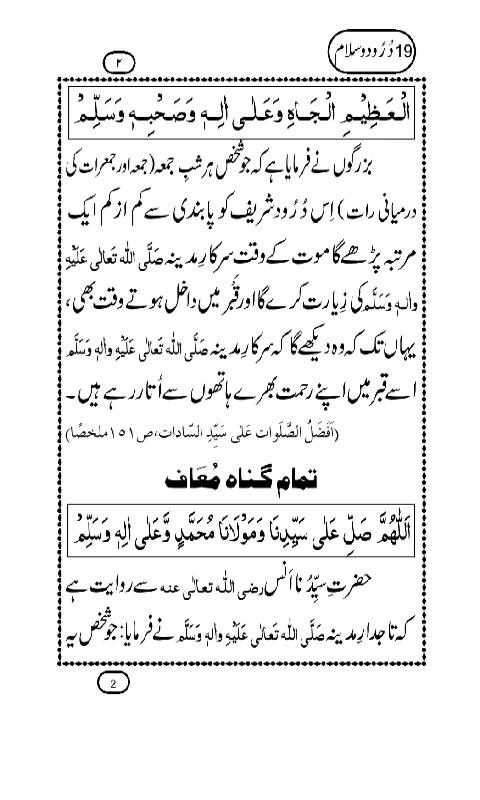 19 دُرُود و سلام
۲
الْعَظِيْمِ الْجَاهِ وَعَلٰى اٰلِهٖ وَصَحْبِهٖ وَسَلِّمْ
بزرگوں نے فرمایا ہے کہ جو شخص ہر شبِ جمعہ (جمعہ اور جمعرات کی
درمیانی رات) اِس دُرُود شریف کو پابندی سے کم از کم ایک
مرتبہ پڑھے گا موت کے وقت سرکارِ مدینہ صَلَّی اللہ تَعَالٰی عَلَیْہِ
واٰلہٖ وَسَلَّم کی زِیارت کرے گا اور قَبْر میں داخل ہوتے وقت بھی،
یہاں تک کہ وہ دیکھے گا کہ سرکارِ مدینہ صَلَّی اللہ تَعَالٰی عَلَیْہِ واٰلہٖ وَسَلَّم
اسے قبر میں اپنے رحمت بھرے ہاتھوں سے اُتار رہے ہیں۔
(اَفضَلُ الصَّلَوات عَلٰی سَیِّدِ السّادات، ص۱۵۱ملخصًا)
تمام گناہ مُعَاف
اَللّٰهُمَّ صَلِّ عَلٰى سَيِّدِنَا وَمَوْلَانَا مُحَمَّدٍ وَّعَلٰى اٰلِهٖ وَسَلِّمْ
حضرتِ سیِّدُنا اَنَس رضی اللہ تعالٰی عنہ سے روایت ہے
کہ تاجدارِ مدینہ صَلَّی اللہ تَعَالٰی عَلَیْہِ واٰلہٖ وَسَلَّم نے فرمایا: جو شخص یہ
2